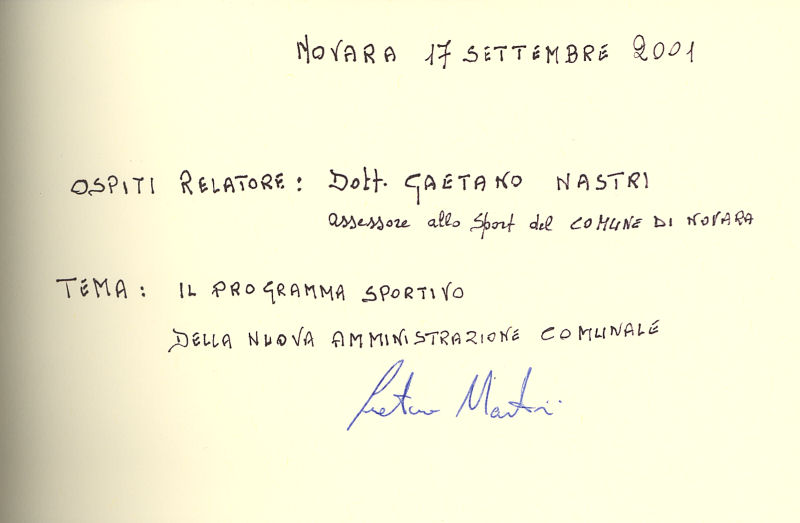 NOVARA 17 SETTEMBRE 2001
OSPITI RELATORE: Dott. GAETANO NASTRI
assessore allo Sport del COMUNE DI NOVARA
TEMA: IL PROGRAMMA SPORTIVO
DELLA NUOVA AMMINISTRAZIONE COMUNALE